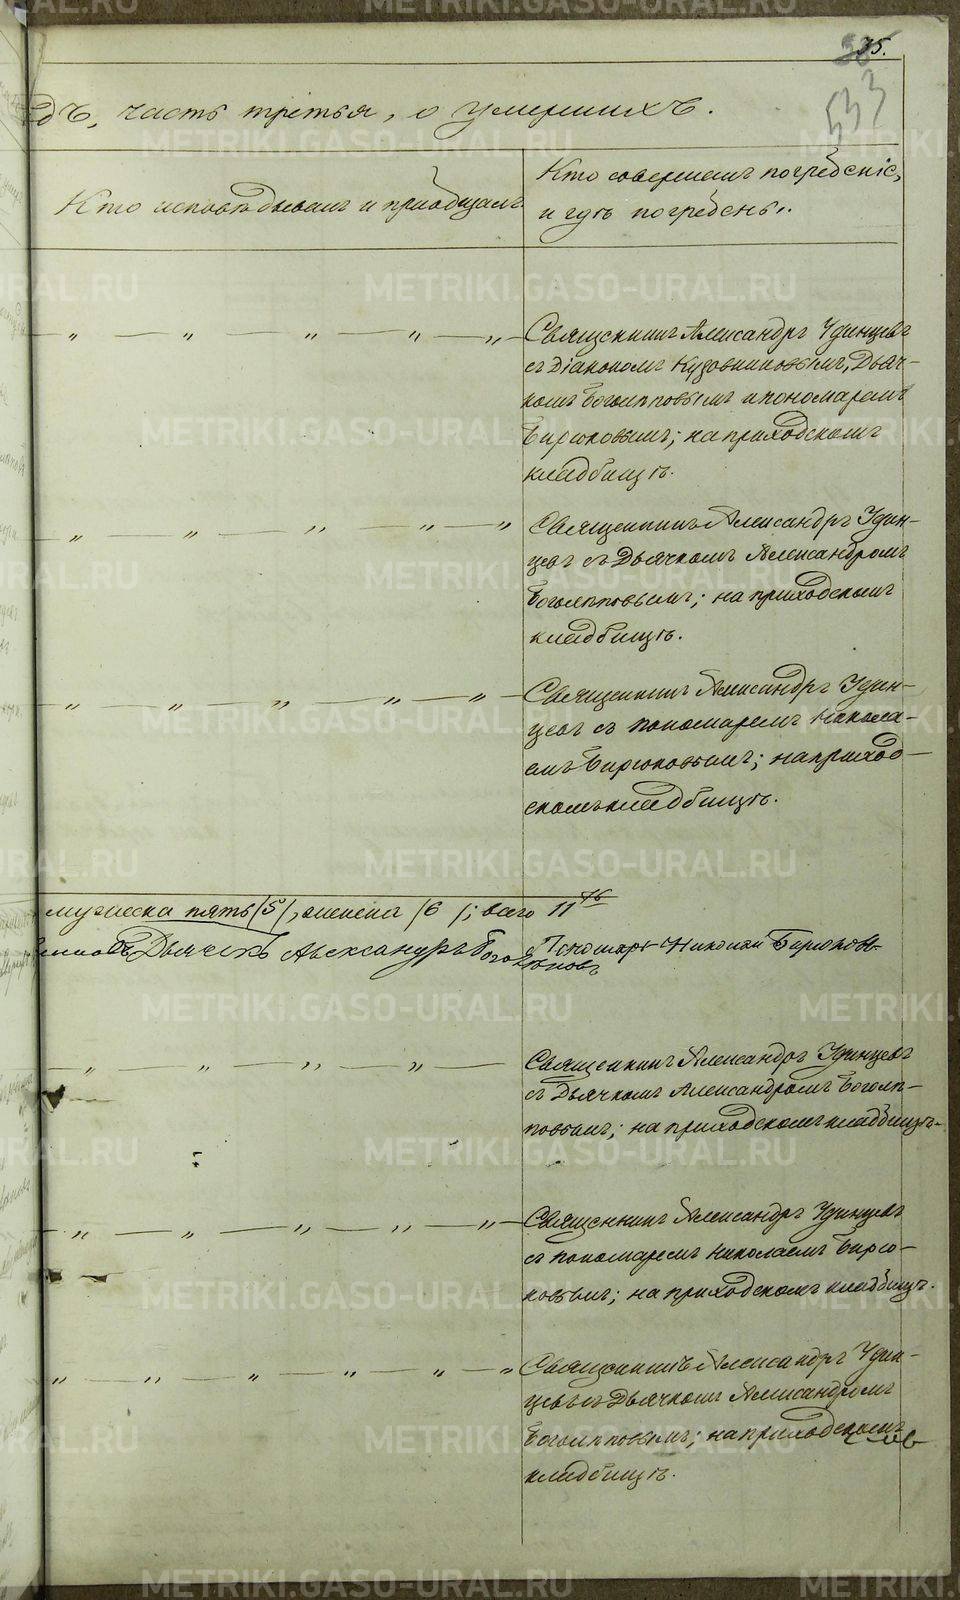 35.
533
дъ, часть третья, о умершихъ.
Кто исповѣдывалъ и пріобщалъ.
Кто совершалъ погребеніе,
и гдѣ погребены.
Священникъ Александръ Удинцевъ
съ Діакономъ Кузовниковымъ, Дьяч-
комъ Боголѣповымъ и пономаремъ
Бирюковымъ; на приходскомъ
кладбищѣ.
Священникъ Александръ Удин-
цевъ съ Дьячкомъ Александромъ
Боголѣповымъ; на приходскомъ
кладбищѣ.
Священникъ Александръ Удин-
цевъ съ пономаремъ Никола-
емъ Бирюковымъ; на приход-
скомъ кладбищѣ.
мужеска пять /5/, женска /6/; всего 11
Дьячекъ Александръ Боголѣповъ
Пономарь Николай Бирюковъ
Священникъ Александръ Удинцевъ
съ Дьячкомъ Александромъ Боголѣ-
повымъ; на приходскомъ кладбищѣ.
Священникъ Александръ Удинцевъ
съ пономаремъ Николаемъ Бирю-
ковымъ; на приходскомъ кладбищѣ.
Священникъ Александръ Удин-
цевъ съ Дьячкомъ Александромъ
Боголѣповымъ; на приходскомъ
кладбищѣ.
METRIKI.GASO-URAL.RU